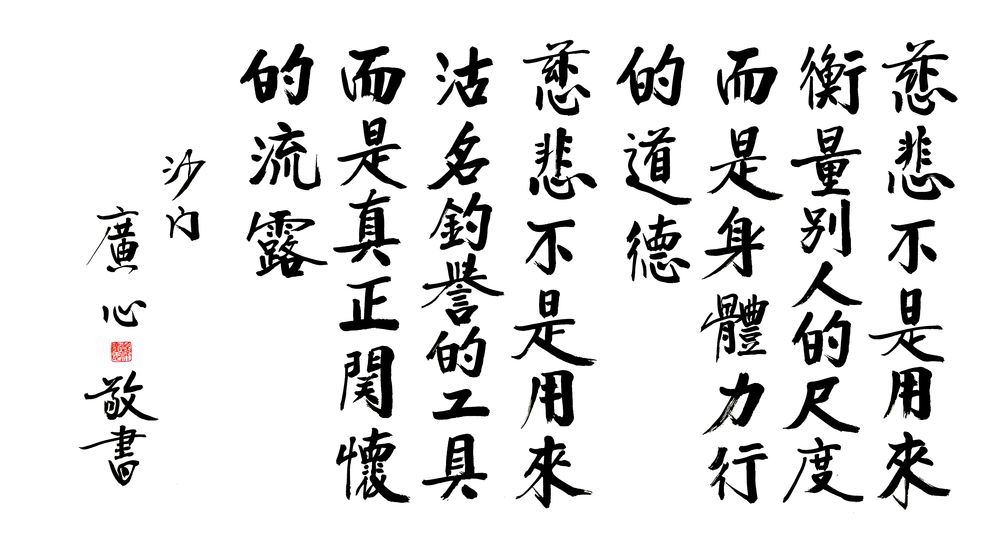 慈悲不是用來
衡量別人的尺度
而是身體力行
的道德
慈悲不是用來
沽名釣譽的工具
而是真正関懷
的流露
沙门
廣心
敬書